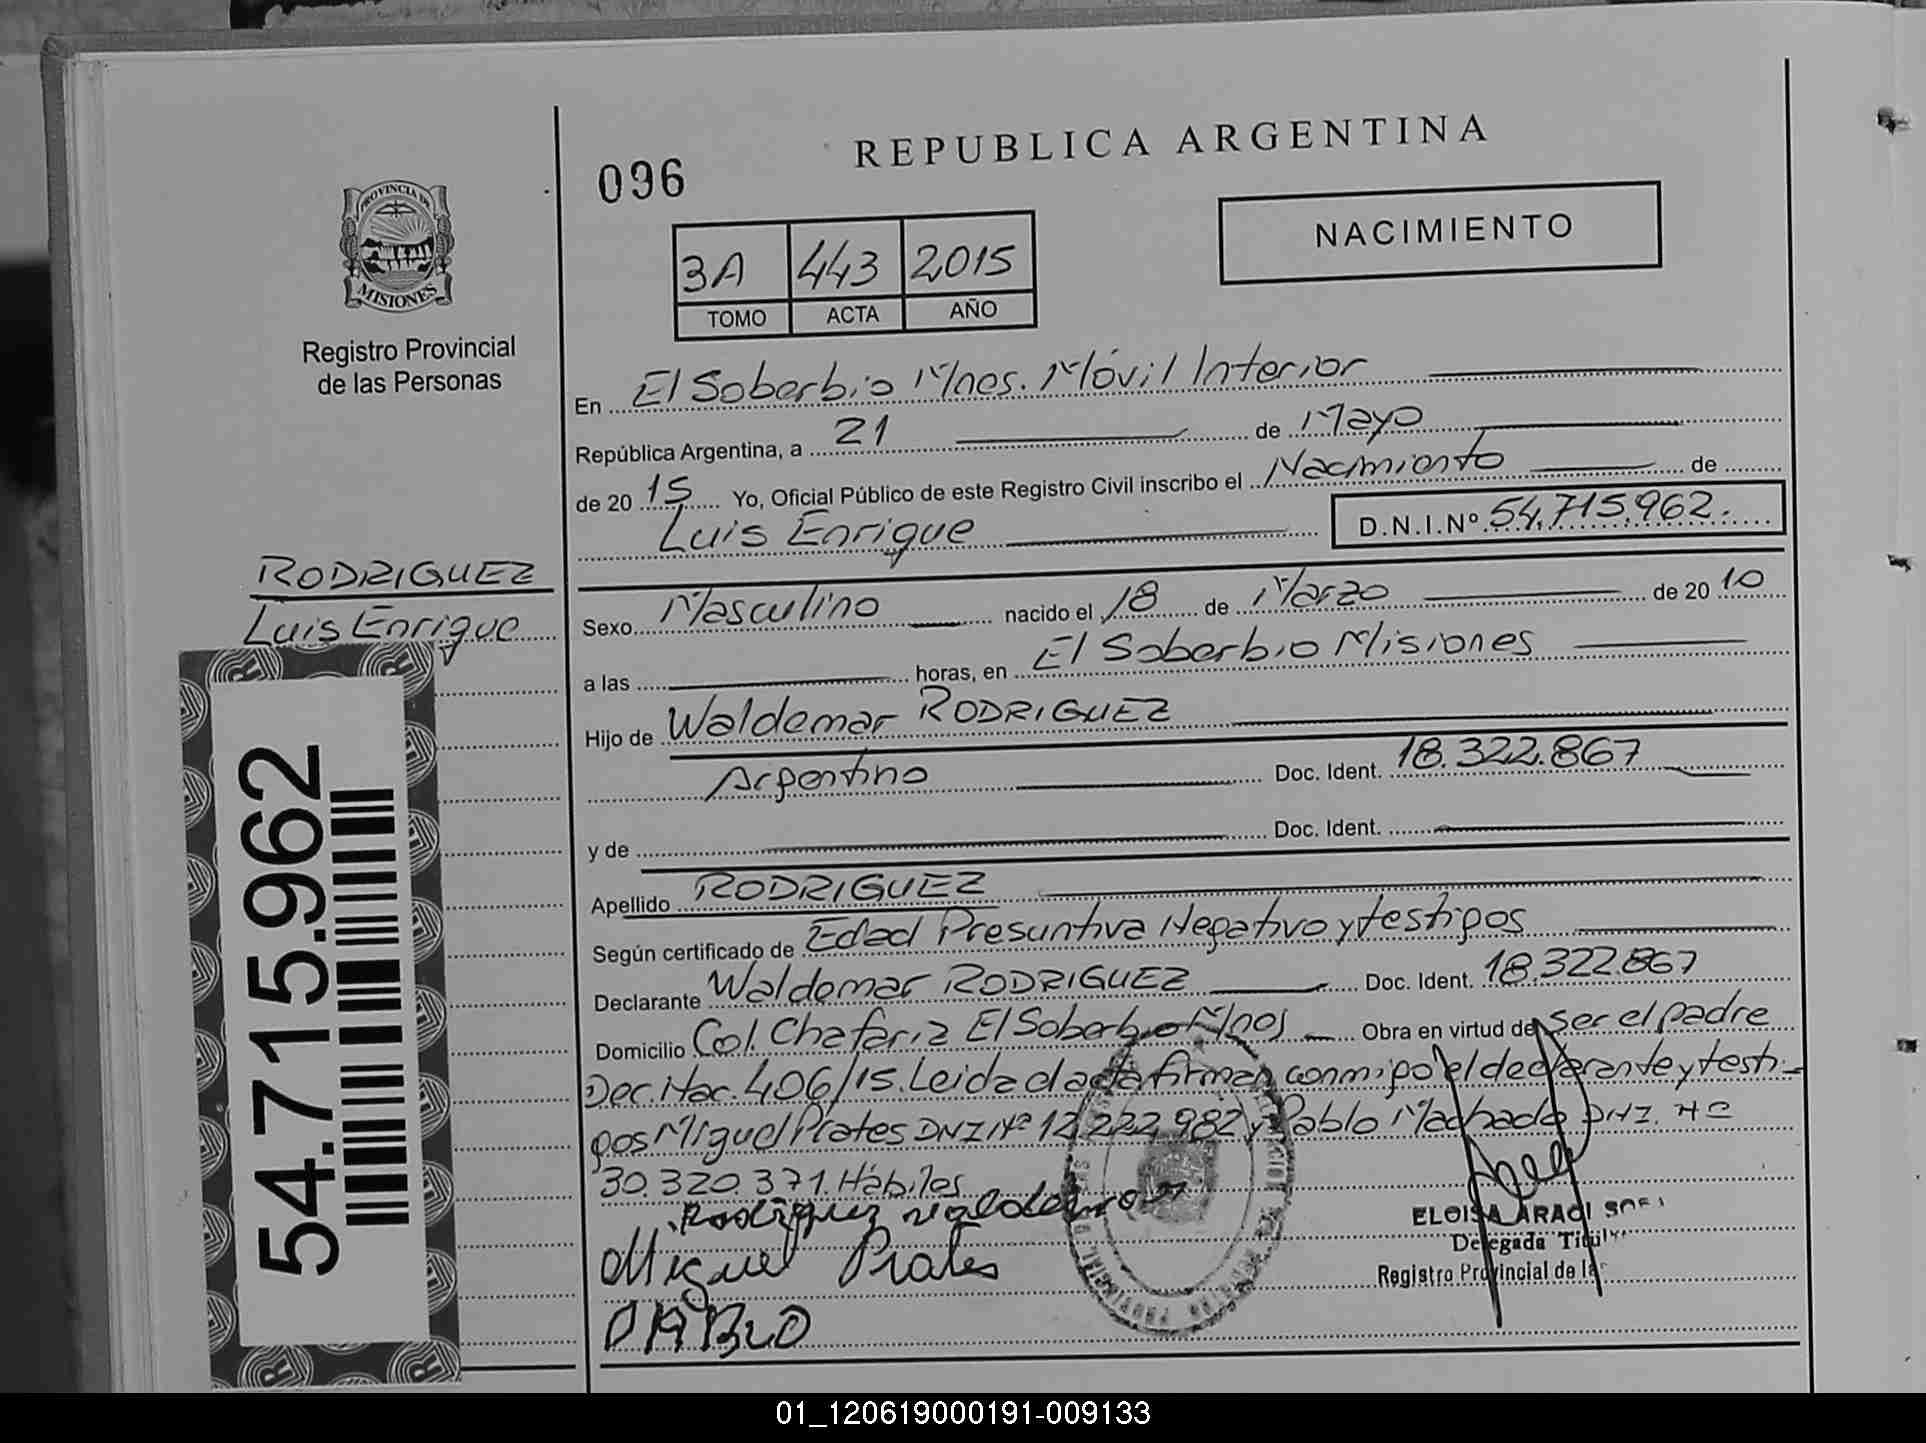 REPUBLICA ARGENTINA
096
NACIMIENTO
3A 443 2015
TOMO ACTA AÑO
PROVINCIA DE
MISIONES
Registro Provincial
de las Personas
En El Soberbio Mnes. Móvil Interior
República Argentina, a 21 de Mayo
de 20 15 Yo, Oficial Público de este Registro Civil inscribo el Nacimiento de
Luis Enrique D.N.I.Nº 54.715.962.
RODRIGUEZ
Luis Enrique
Sexo Masculino nacido el 18 de Marzo de 20 10
a las horas, en El Soberbio Misiones
Hijo de Waldemar RODRIGUEZ
Argentino Doc. Ident. 18.322.867
y de Doc. Ident.
Apellido RODRIGUEZ
Según certificado de Edad Presuntiva Negativo y testigos
Declarante Waldemar RODRIGUEZ Doc. Ident. 18.322.867
Domicilio Col. Chafariz El Soberbio Mnes Obra en virtud de ser el padre
Dec. Nac. 406/15. Leida el acta firman conmigo el declarante y testi-
gos Miguel Prates DNI Nº 12.222.982 y Pablo Machado DNI. Nº
30.320.371. Hábiles
Rodriguez
Miguel Prates
PABLO
ELOISA ARACI
Delegada Titular
Registro Provincial de la
54.715.962
01_120619000191-009133